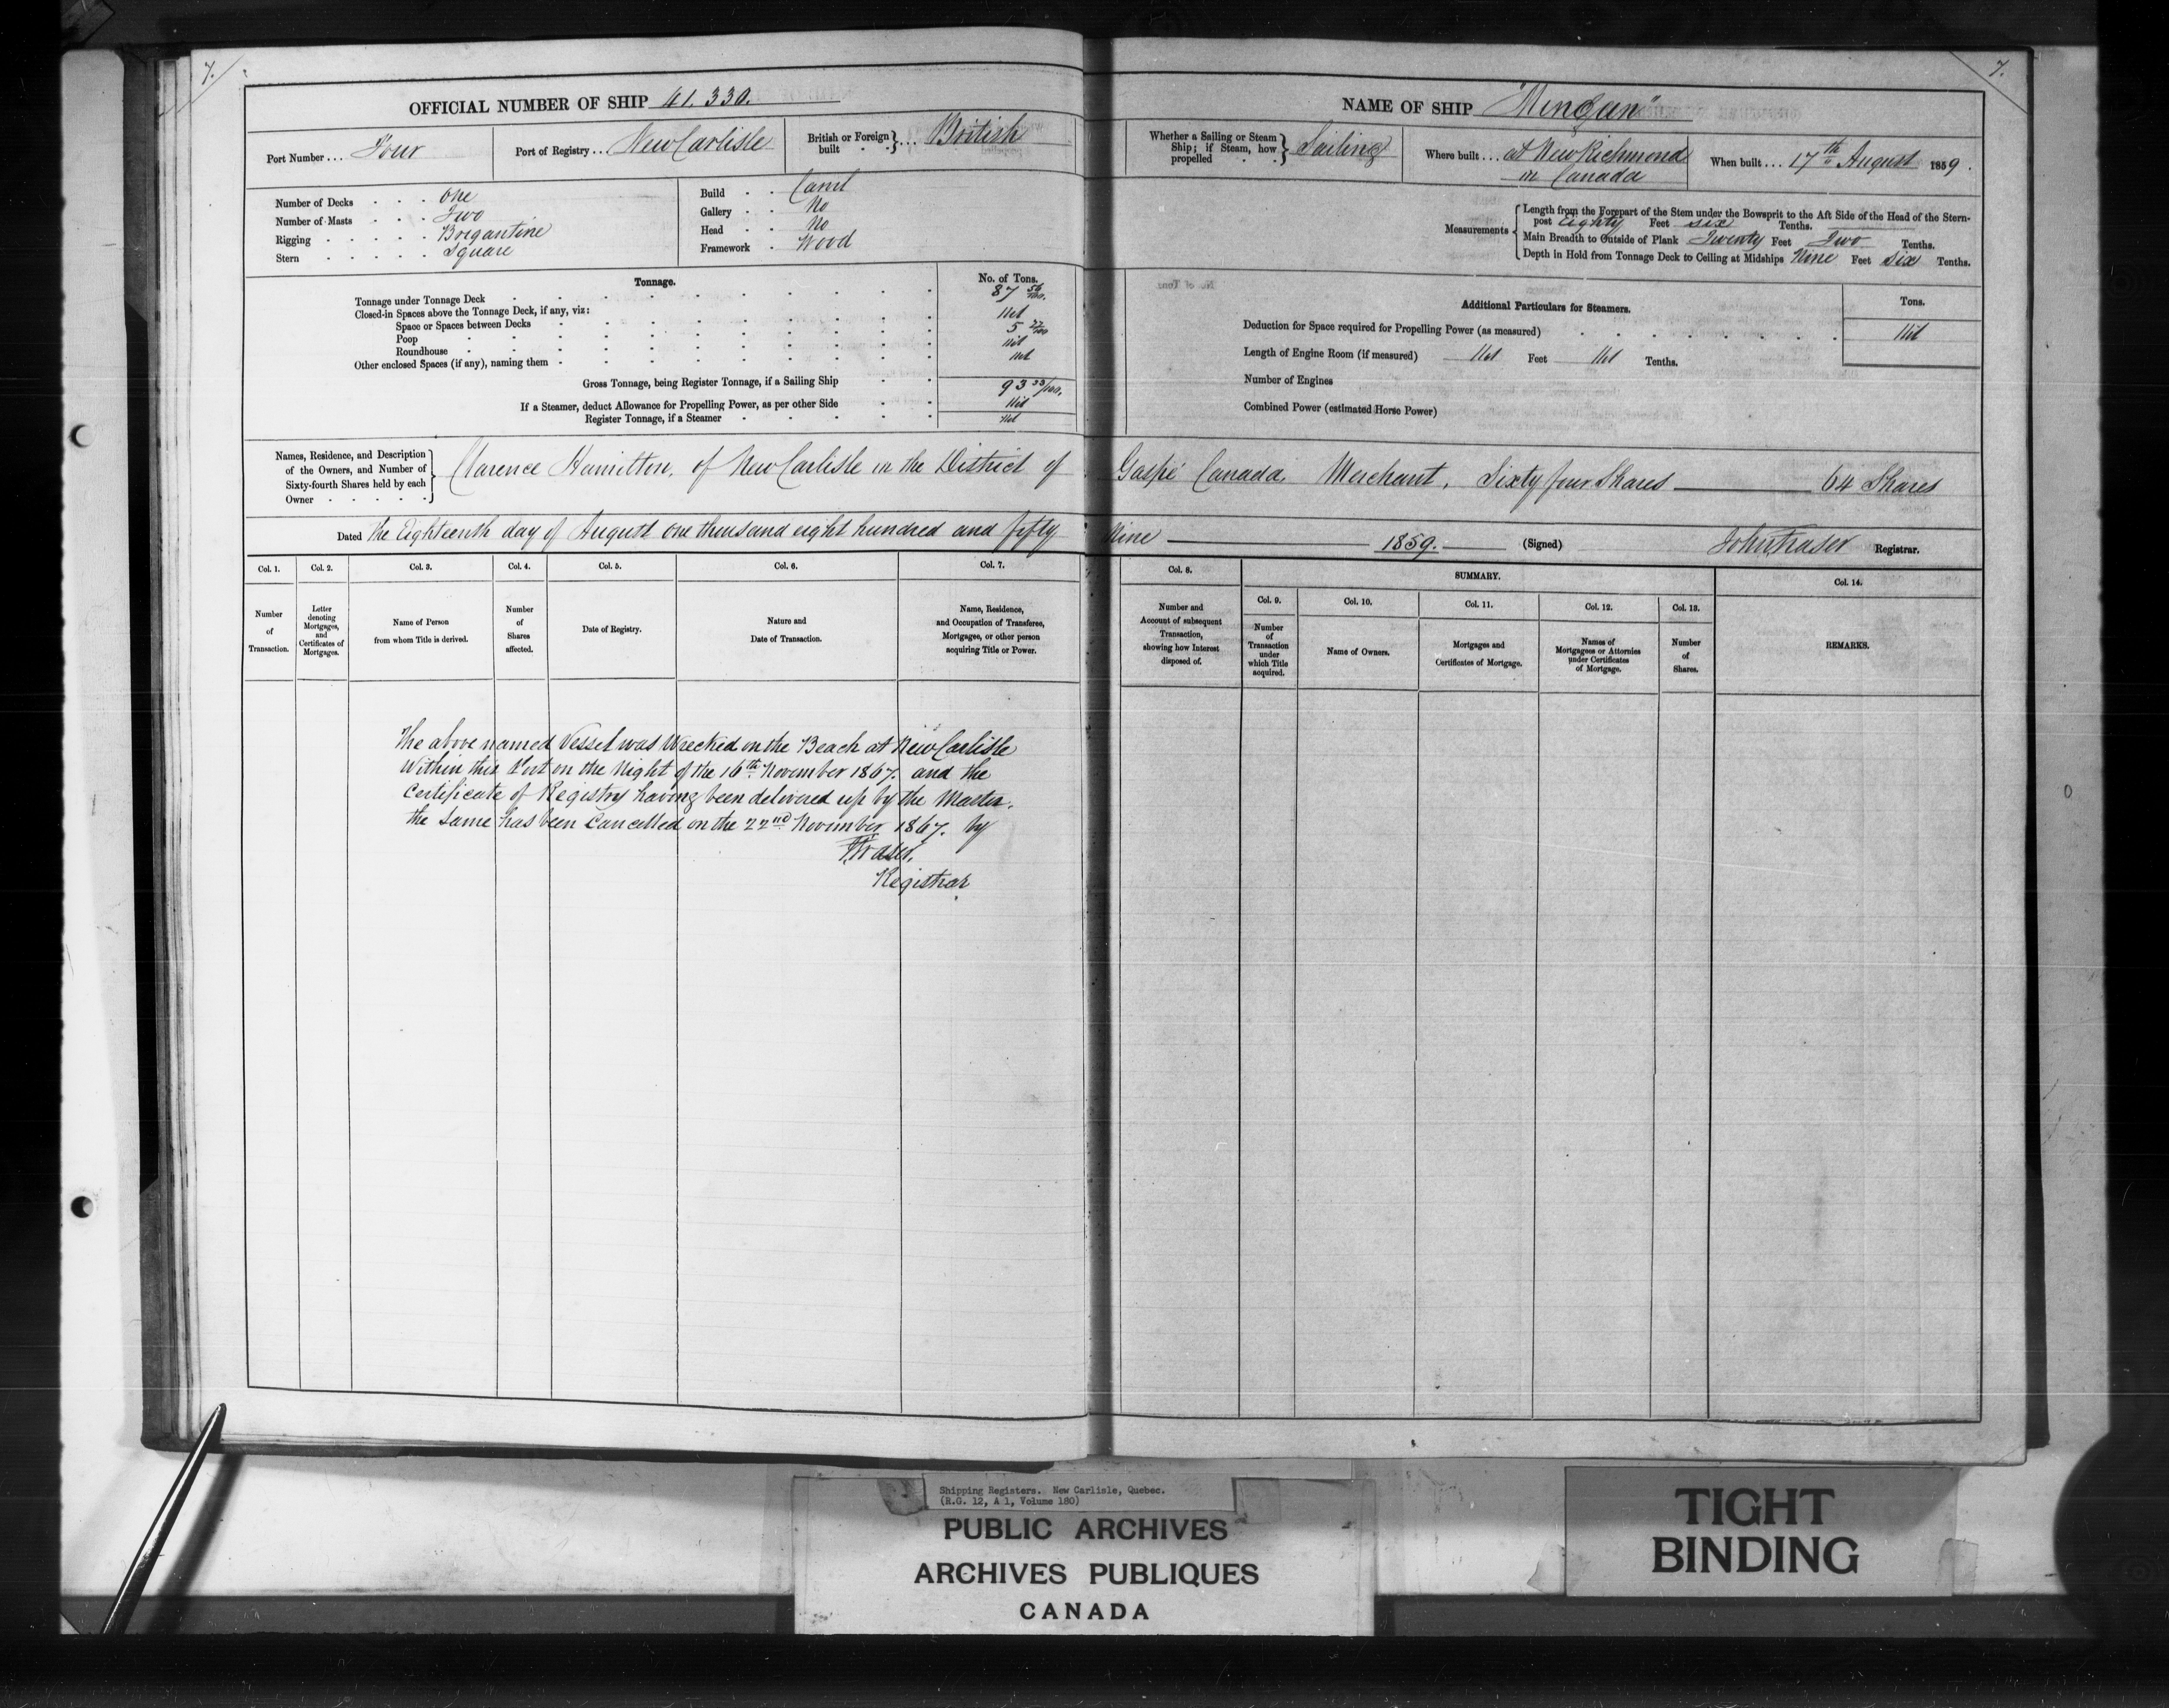 7.
OFFICIAL NUMBER OF SHIP 41.330.
Port Number ... Four
Port of Registry ... New Carlisle
British or Foreign built } ... British
Number of Decks . . . One
Number of Masts . . . Two
Rigging . . . . . Brigantine
Stern . . . . . Square
Build . . Carvel
Gallery . . No
Head . . No
Framework . Wood
Tonnage.
No. of Tons.
Tonnage under Tonnage Deck 87 56/100.
Closed-in Spaces above the Tonnage Deck, if any, viz:
Space or Spaces between Decks Nil
Poop 5 77/100
Roundhouse Nil
Other enclosed Spaces (if any), naming them Nil
Gross Tonnage, being Register Tonnage, if a Sailing Ship 93 33/100.
If a Steamer, deduct Allowance for Propelling Power, as per other Side Nil
Register Tonnage, if a Steamer Nil
7.
NAME OF SHIP "Mingan"
Whether a Sailing or Steam Ship; if Steam, how propelled } Sailing
Where built ... at New Richmond
in Canada
When built ... 17th August 1859.
Measurements
Length from the Forepart of the Stem under the Bowsprit to the Aft Side of the Head of the Stern-
post Eighty Feet six Tenths.
Main Breadth to Outside of Plank Twenty Feet Two Tenths.
Depth in Hold from Tonnage Deck to Ceiling at Midships Nine Feet Six Tenths.
Additional Particulars for Steamers.
Tons.
Deduction for Space required for Propelling Power (as measured) Nil
Length of Engine Room (if measured) Nil Feet Nil Tenths.
Number of Engines
Combined Power (estimated Horse Power)
Names, Residence, and Description
of the Owners, and Number of
Sixty-fourth Shares held by each
Owner
Clarence Hamilton, of New Carlisle in the District of Gaspé Canada, Merchant, Sixty four Shares 64 Shares
Dated the Eighteenth day of August one thousand eight hundred and fifty Nine 1859. (Signed) John Fraser Registrar.
Col. 1.
Number
of
Transaction.
Col. 2.
Letter
denoting
Mortgages,
and
Certificates of
Mortgages.
Col. 3.
Name of Person
from whom Title is derived.
Col. 4.
Number
of
Shares
affected.
Col. 5.
Date of Registry.
Col. 6.
Nature and
Date of Transaction.
Col. 7.
Name, Residence,
and Occupation of Transferee,
Mortgagee, or other person
acquiring Title or Power.
Col. 8.
Number and
Account of subsequent
Transaction,
showing how Interest
disposed of.
SUMMARY.
Col. 9.
Number
of
Transaction
under
which Title
acquired.
Col. 10.
Name of Owners.
Col. 11.
Mortgages and
Certificates of Mortgage.
Col. 12.
Names of
Mortgagees or Attornies
under Certificates
of Mortgage.
Col. 13.
Number
of
Shares.
Col. 14.
REMARKS.
The above named Vessel was Wrecked on the Beach at New Carlisle
Within this Port on the Night of the 16th November 1867. and the
Certificate of Registry having been delivered up by the Master.
the same has been Cancelled on the 22nd November 1867. by
JFraser.
Registrar
Shipping Registers. New Carlisle, Quebec.
(R.G. 12, A 1, Volume 180)
PUBLIC ARCHIVES
ARCHIVES PUBLIQUES
CANADA
TIGHT
BINDING